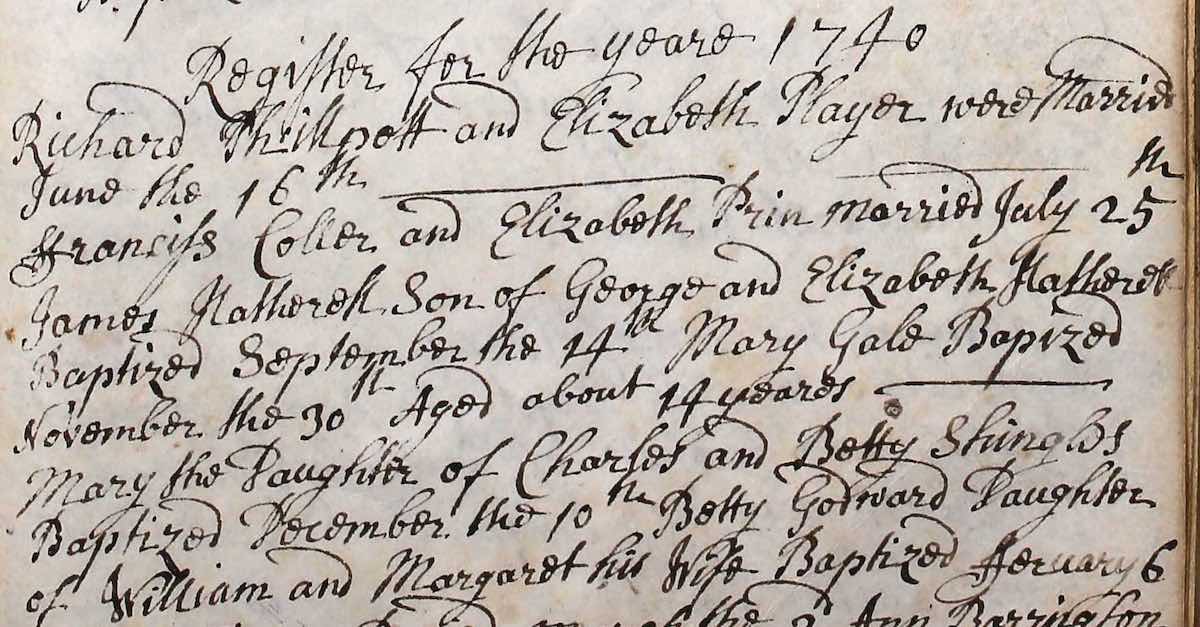 Register for the yeare 1740
Richard Phillpott and Elizabeth Player were Married
June the 16th
ffranciss Coller and Elizabeth Prin married July 25th
James Hatherell Son of George and Elizabeth Hatherell
Baptized September the 14th Mary Gale Bapized
November the 30st Aged about 14 yeares
Mary the Daughter of Charles and Betty Shingles
Baptized December the 10th Betty Godward Daughter
of William and Margaret his Wife Baptized fferuary 6
the 2d Ann Barrington